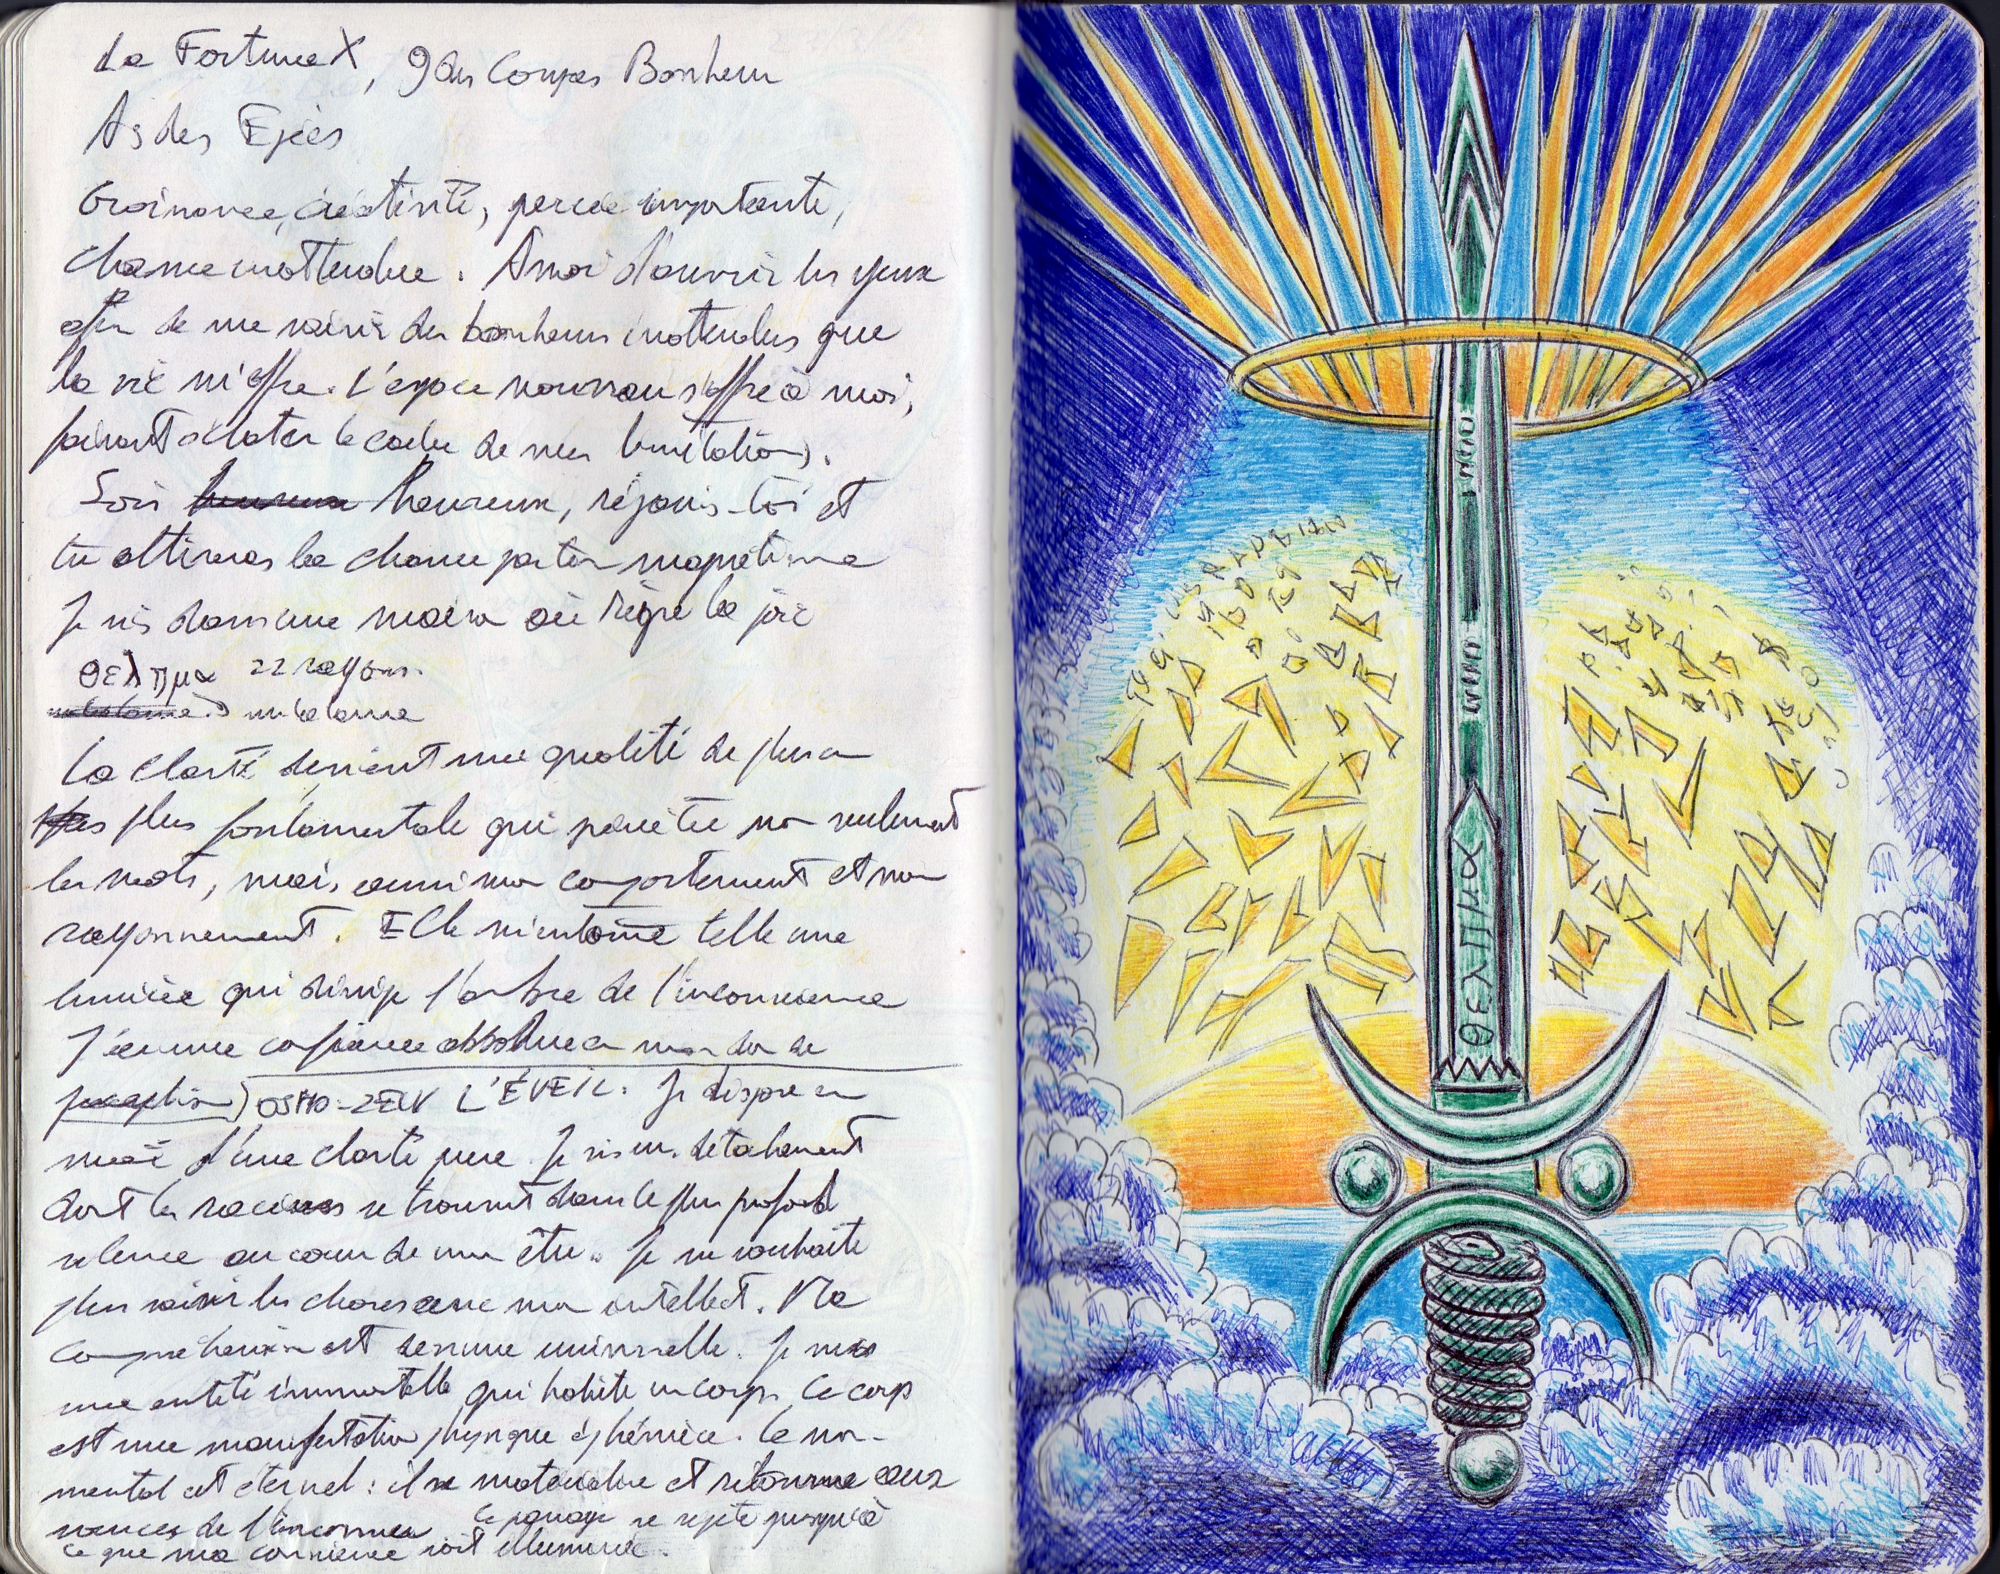 La Fortune X, 9 des Coupes Bonheur
As des Epées
Croissance, créativité, percée importante,
chance inattendue. A moi d'ouvrir les yeux
afin de me saisir des bonheurs inattendus que
la vie m'offre. L'espace nouveau s'offre à moi,
faisant éclater le cadre de mes limitations.
Sois heureux, réjouis-toi et
tu attireras la chance par ton magnétisme
Je vis dans une maison où règne la joie
θελημα 22 rayons.
La clarté devient une qualité de plus en
plus fondamentale qui pénètre non seulement
les mots, mais, aussi mon comportement et mon
rayonnement. Elle m'entoure telle une
lumière qui dissipe l'ombre de l'inconscience
J'ai une confiance absolue en mon don de
perception) OSHO-ZEN L'ÉVEIL: Je dispose en
moi d'une clarté pure. Je vis un détachement
dont les racines se trouvent dans le plus profond
silence au cœur de mon être. Je ne souhaite
plus saisir les choses avec mon intellect. Ma
compréhension est devenue universelle. Je suis
une entité immortelle qui habite un corps. Ce corps
est une manifestation physique éphémère. Le non-
mental est éternel: il se matérialise et retourne aux
sources de l'inconnu. Ce passage se répète jusqu'à
ce que ma conscience soit illuminée.
θελημα